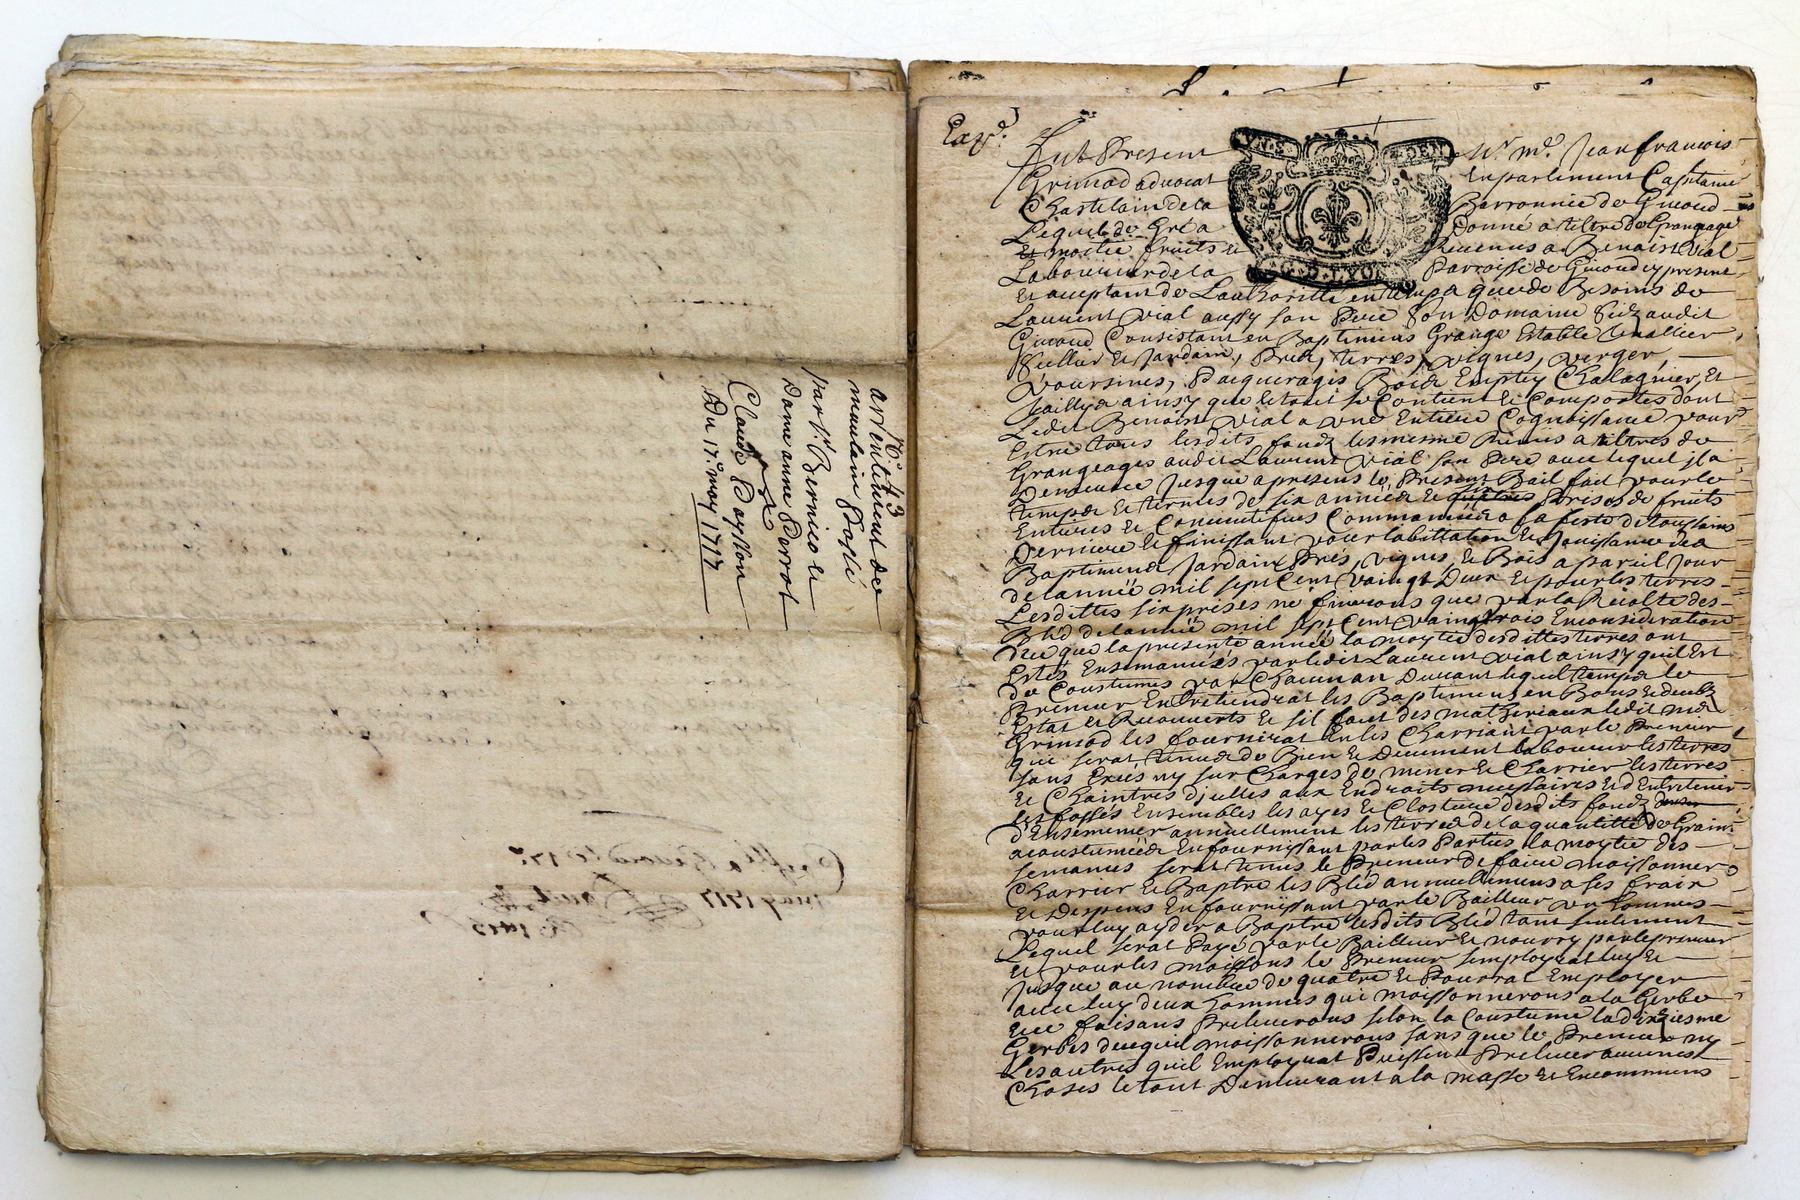 N.° 43
arrentement de
moulain Passé
par s.r Bernico le
Dame anne Perrot
a
Claude Paysson
Du 17.e may 1717
may 1717
Exp.é
Fut Present Mr. md. Jean francois
Grimod advocat En parlement Capitaine
Chastelain de la Barronnie de Giraud
Lequel de Gré a Donné a tiltre de Grangeage
et moitié fruits et Revenus a Benoist Vial
Laboureur de la Parroisse de Giraud cy present
Et acceptant de Lauthorité en temps que de Besoins de
Laurent Vial aussy son Pere Son Domaine Scitz audit
Giraud Consistant en Baptimens Grange Estable Cuvallier
Sellier et Jardain, Prés, terres, vignes, verger,
Voursines, Pasqueragis Bois Empley Chatagnier Et
pailly ainsy que le tout se Contient et Comporte dont
Ledit Benoist Vial a une Entiere Cognoissance pour
Estre tous lesdits fondz les mesme Remis a tiltres de
Grangeages audit Laurent Vial son Pere avec lequel jl a
Demeuré Jusque a presens le Present Bail fait pour le
temps et termes de six année et six Prises de fruits
Entieres et Consecutifves Commancée a la feste de toussains
Derniere et finissant pour labittation et Jouissance des
Baptimens Jardain Prés, vignes et Bois a pareil Jour
de lannée mil sept Cent vaingt Deux et pour les terres
Lesdittes six prises ne finirons que par la Recolte des
Bled de lannée mil sept Cent vaingt trois En consideration
De ce que la presente année la moytié desdittes terres ont
Estés Ensemancés par ledit Laurent Vial ainsy quil Est
de Coustumes par Chacun an Durant lequel temps le
Preneur Entretiendrat les Baptimens en Bons et deubz
Estat et Recouverts et sil faut des matheriaux ledit md
Grimod les fournirat En les Charriant par le Preneur
qui serat tenu de Bien et Deuement labourer les terres
sans Exces ny sur Charges de mener et Charrier les terres
et Chaintres dycelles aux Endroits necessaires et d'Entretenir
les fossés Ensembles les ayes et Closture desdits fondz
d'Ensemencer annuellement les terres de la quantitté de Grain
acoustumée En fournissant par les Parties la moytié des
semances serat tenus le Preneur de faire moissonner
Charrier et Baptre les Bled annuellement a ses frais
et Despens En fournissant par le Bailleur un hommes
pour luy ayder a Baptre lesdits Bled tant seulement
Lequel serat Payé par le Bailleur et nourry par le preneur
et pour les moissons le Preneur semployerat luy et
Jusque au nombre de quatre et Pourrat Employer
avec luy deux hommes qui moissonnerons a la Gerbe
Ce faisans Preleverons selon la Coustume la dixiesme
Gerbes de ce quil moissonnerons sans que le Preneur ny
Les autres quil Employerat Puissent Prelever aucunes
Choses le tout Demeurant a la masse et En commun